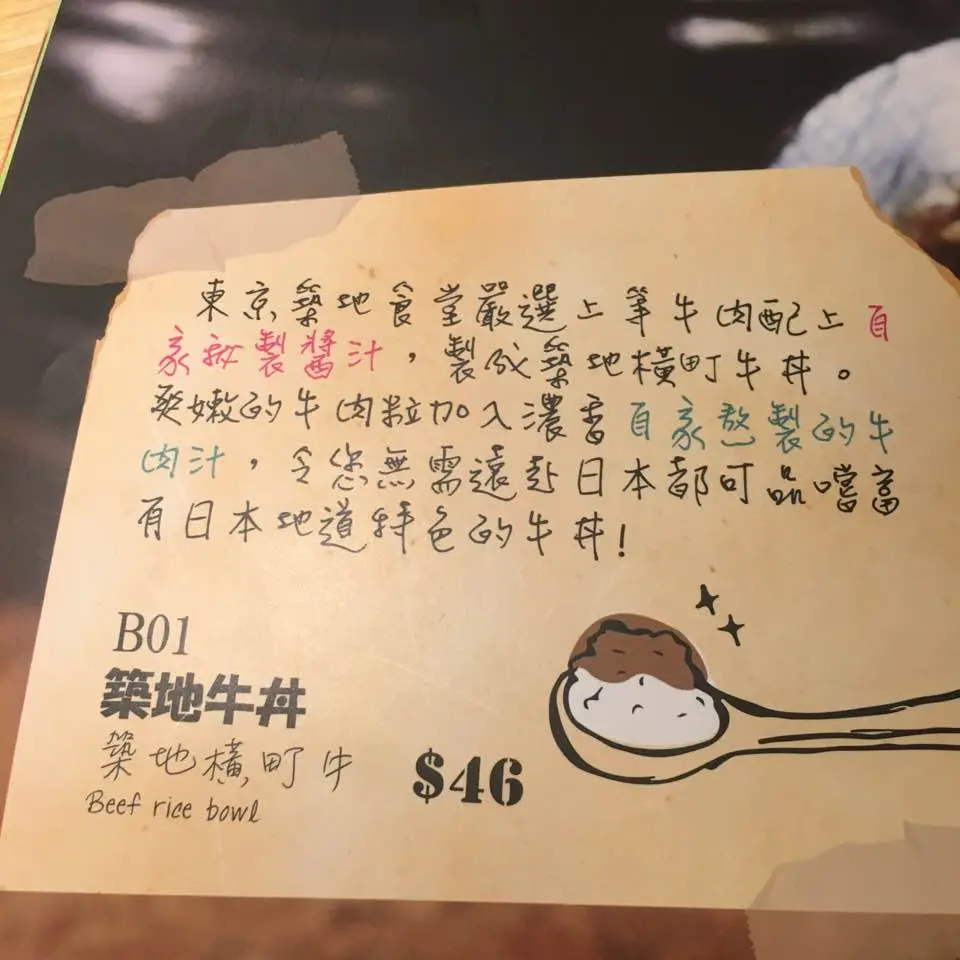 東京築地食堂嚴選上等牛肉配上自
家秘製醬汁，製成築地橫町牛丼。
爽嫩的牛肉粒加入濃香自家熬製的牛
肉汁，令您無需遠赴日本都可品嚐富
有日本地道特色的牛丼!
B01
築地牛丼
築地橫町牛
Beef rice bowl
$46